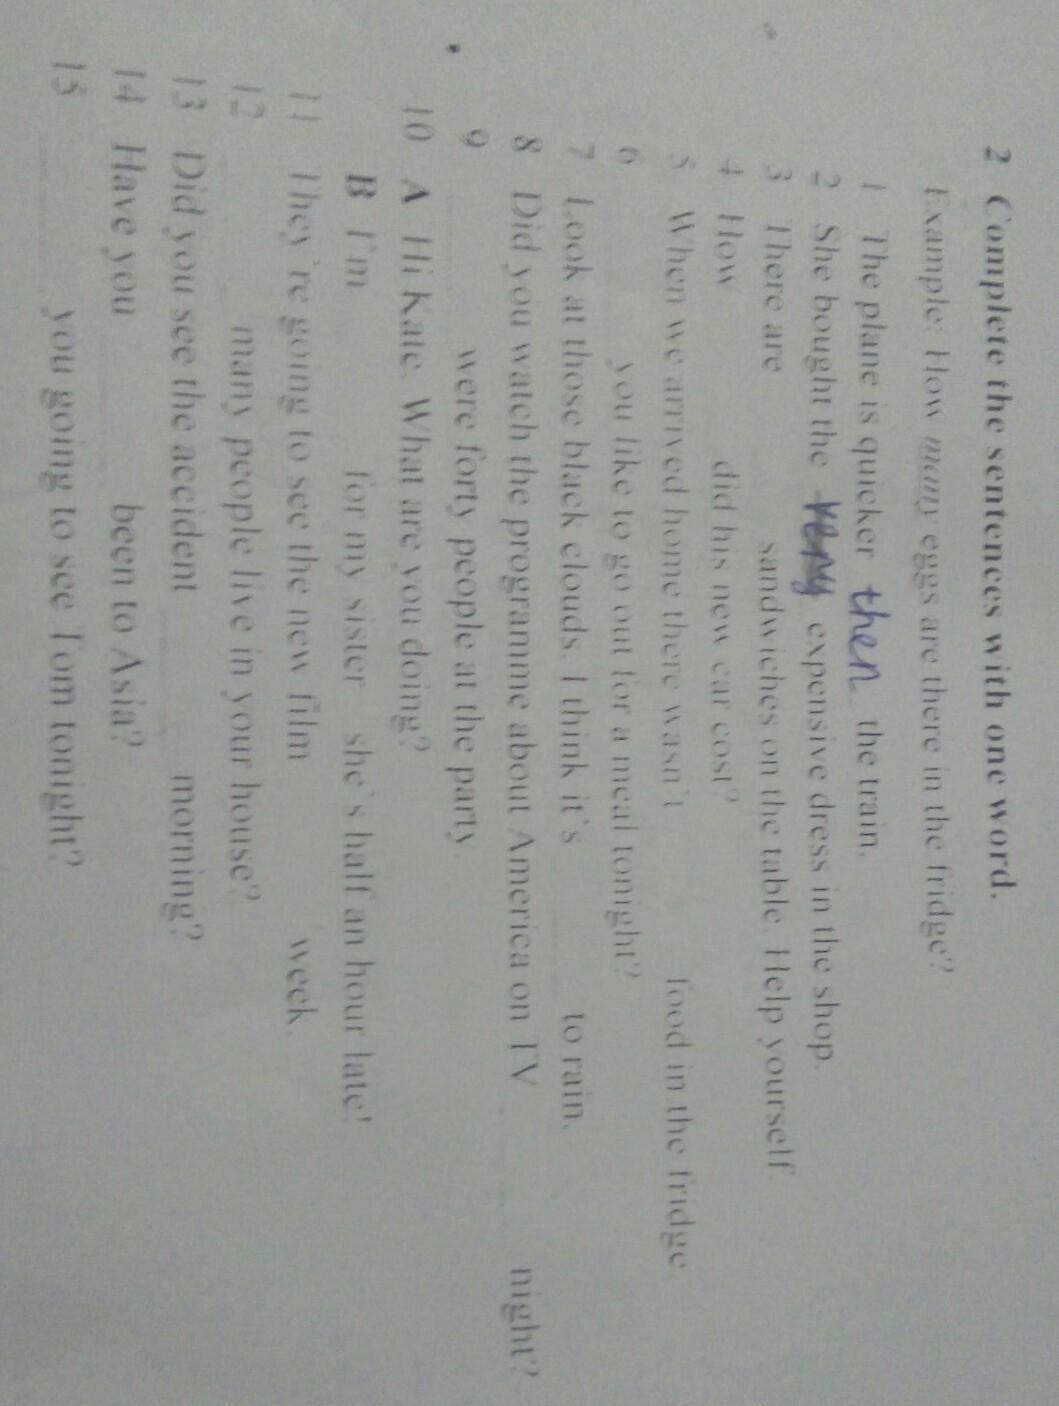 2 Complete the sentences with one word.
Example: How many eggs are there in the fridge?
1 The plane is quicker then the train.
2 She bought the very expensive dress in the shop.
3 There are sandwiches on the table. Help yourself.
4 How did his new car cost?
5 When we arrived home there wasn't food in the fridge.
6 you like to go out for a meal tonight?
7 Look at those black clouds. I think it's to rain.
8 Did you watch the programme about America on TV night?
9 were forty people at the party.
10 A Hi Kate. What are you doing?
B I'm for my sister she's half an hour late!
11 They're going to see the new film week.
12 many people live in your house?
13 Did you see the accident morning?
14 Have you been to Asia?
15 you going to see Tom tonight?